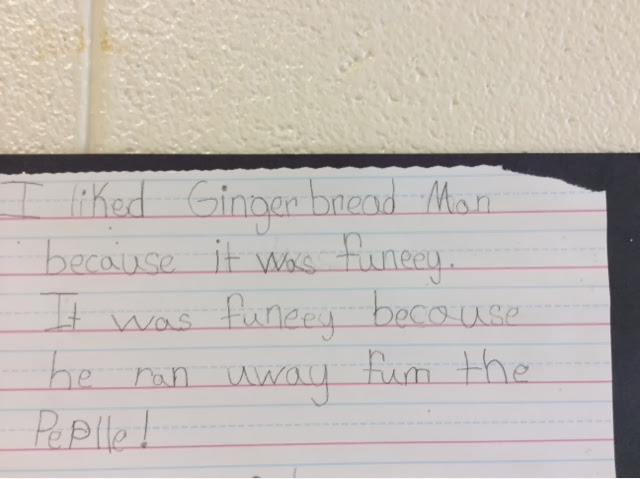 I liked Gingerbread Man
because it was funeey.
It was funeey becouse
he ran uway fum the
Peplle!